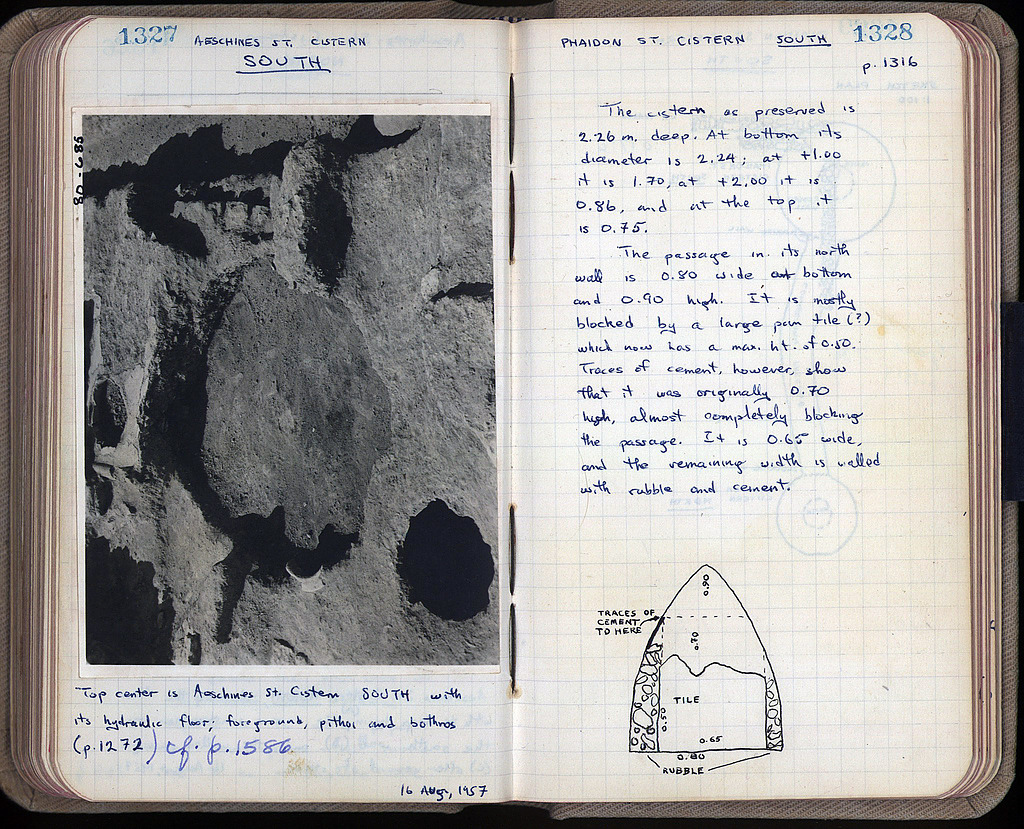 1327 AESCHINES ST. CISTERN
SOUTH
80-685
Top center is Aeschines St. Cistern SOUTH with
its hydraulic floor; foreground, pithoi and bothros
(p. 1272) cf. p. 1586
16 Aug, 1957
PHAIDON ST. CISTERN SOUTH 1328
p. 1316
The cistern as preserved is
2.26 m. deep. At bottom its
diameter is 2.24; at +1.00
it is 1.70, at +2.00 it is
0.86, and at the top it
is 0.75.
The passage in its north
wall is 0.80 wide at bottom
and 0.90 high. It is mostly
blocked by a large pan tile (?)
which now has a max. ht. of 0.50.
Traces of cement, however, show
that it was originally 0.70
high, almost completely blocking
the passage. It is 0.65 wide,
and the remaining width is walled
with rubble and cement.
0.90
TRACES OF
CEMENT
TO HERE
0.70
TILE
0.50
0.65
0.80
RUBBLE